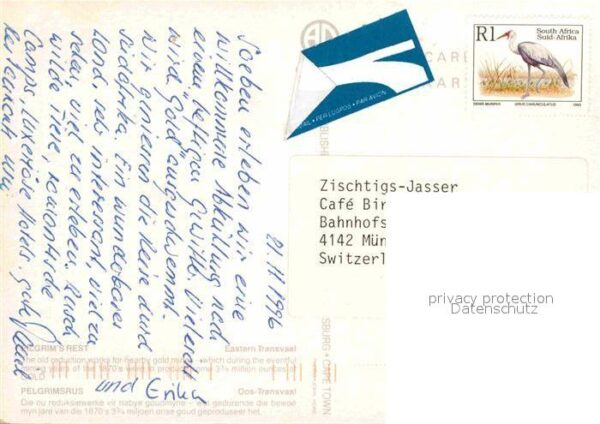 21.11.1996
Soeben erleben wir eine
willkommene Abkühlung nach
einem heftigen Gewitter. Vielleicht
wird Gold ausgeschwemmt.
Wir geniessen die Reise durch
Südafrika. Ein wunderbares
Land, es interessant, viel zu
sehen, viel zu erleben. Busch
wilde Tiere, romantische
Camps, luxeriöse Hotels, gute
bei
und Erika
PILGRIM'S REST
Eastern Transvaal
The old reduction works for nearby gold mines – which during the eventful
mining years of the 1870's were to produce some 3¾ million ounces of
GOLD
PELGRIMSRUS
Oos-Transvaal
Die ou reduksiewerke vir nabye goudmyne – wat gedurende die bewoë
myn jare van die 1870's 3¾ miljoen onse goud geproduseer het.
PER LUGPOS • PAR AVION
R1
South Africa
Suid-Afrika
DENIS MURPHY
GRUS CARUNCULATUS
1993
Zischtigs-Jasser
Café Bir
Bahnhofs
4142 Mün
Switzerl
privacy protection
Datenschutz